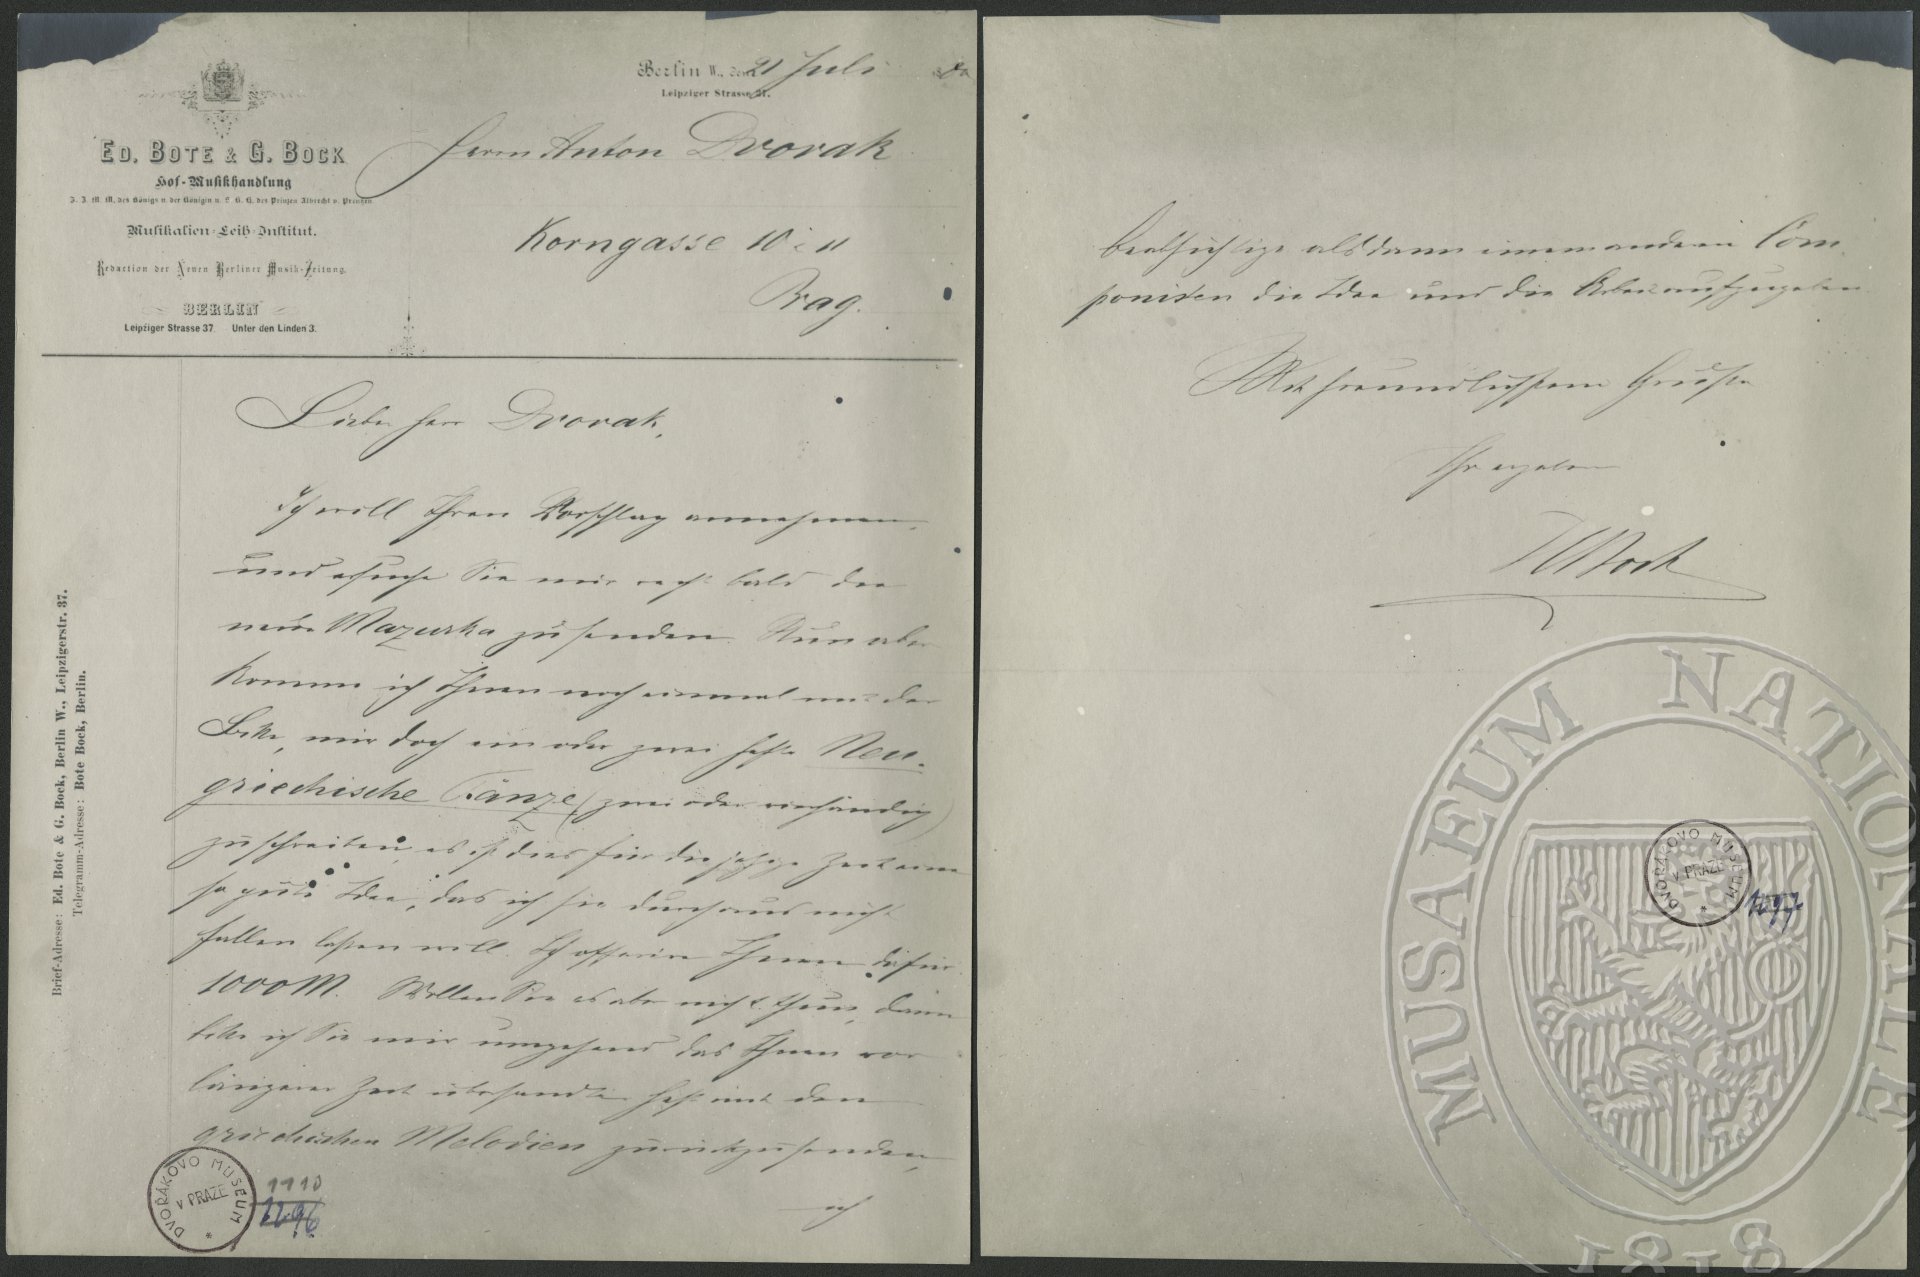 Berlin W., den 21 Juli 80
Leipziger Strasse 37.
ED. BOTE & G. BOCK
Hof-Musikhandlung
J. J. M. M. des Königs u. der Königin u. S. K. H. des Prinzen Albrecht v. Preußen.
Musikalien-Leih-Institut.
Redaction der Neuen Berliner Musik-Zeitung.
BERLIN
Leipziger Strasse 37 Unter den Linden 3.
Herrn Anton Dvorak
Korngasse 10 11
Prag.
Brief-Adresse: Ed. Bote & G. Bock, Berlin W., Leipzigerstr. 37.
Telegramm-Adresse: Bote Bock, Berlin.
Lieber Herr Dvorak,
Ich will Ihren Vorschlag annehmen,
und ersuche Sie mir recht bald die
neue Mazurka zu senden. Nun aber
komme ich Ihnen noch einmal mit der
Bitte, mir doch ein oder zwei Hefte Neu-
griechische Tänze (zwei oder vierhändig)
zu schreiben, es ist dies für die jetzige Zeit eine
so gute Idee, das ich sie durchaus nicht
fallen laßen will. Ich offerire Ihnen dafür
1000 M. Wollen Sie es aber nicht thun, dann
bitte ich Sie mir umgehend das Ihnen vor
längerer Zeit übersandte Heft mit den
griechischen Melodien zurückzusenden,
ich
DVOŘÁKOVO MUSEUM
V PRAZE
1110
1296
beabsichtige alsdann einem anderen Com-
ponisten die Idee und die Arbeit aufzugeben
Mit freundlichstem Gruße
Ihr ergebener
Bock
DVOŘÁKOVO MUSEUM
V PRAZE
1297
MUSAEUM NATIONALE
1818